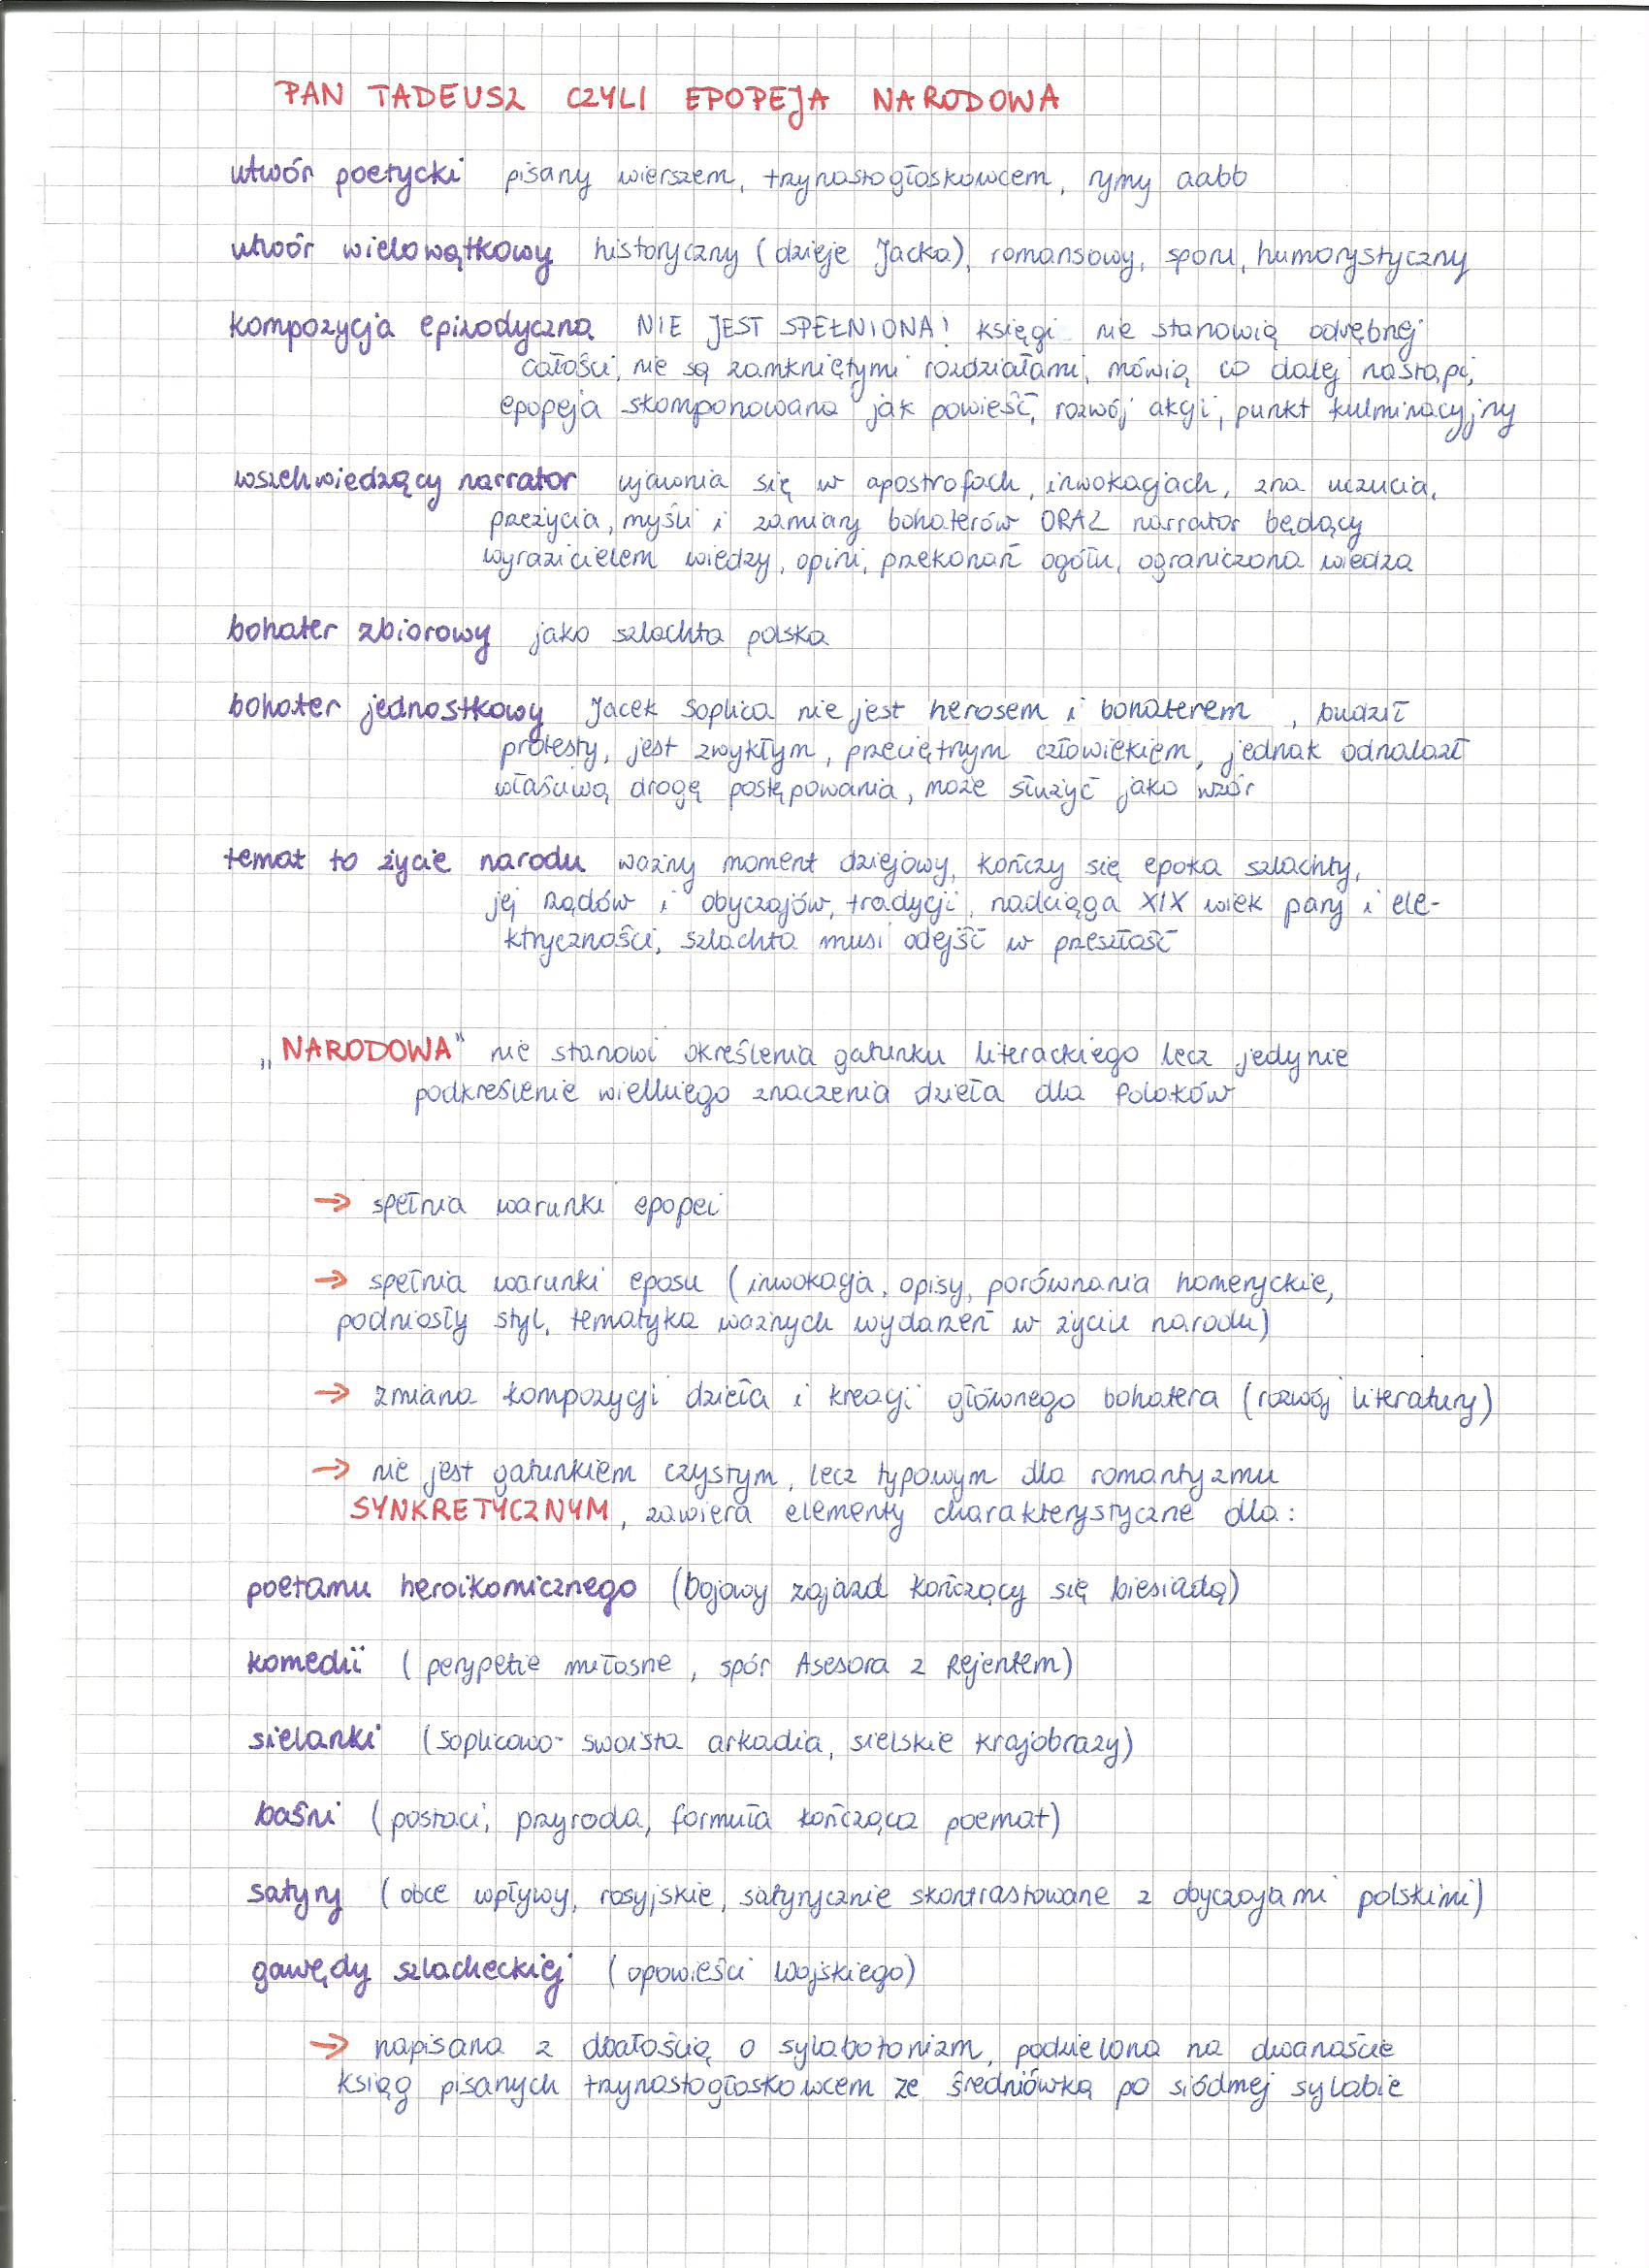 PAN TADEUSZ CZYLI EPOPEJA NARODOWA
utwór poetycki pisany wierszem, trzynastogłoskowcem, rymy aabb
utwór wielowątkowy historyczny (dzieje Jacka), romansowy, sporu, humorystyczny
kompozycja epizodyczna NIE JEST SPEŁNIONA! księgi nie stanowią odrębnej
całości, nie są zamkniętymi rozdziałami, mówią co dalej nastąpi,
epopeja skomponowana jak powieść, rozwój akcji, punkt kulminacyjny
wszechwiedzący narrator ujawnia się w apostrofach, inwokacjach, zna uczucia,
przeżycia, myśli i zamiary bohaterów ORAZ narrator będący
wyrazicielem wiedzy, opini, przekonań ogółu, ograniczona wiedza
bohater zbiorowy jako szlachta polska
bohater jednostkowy Jacek Soplica nie jest herosem i bohaterem , budził
protesty, jest zwykłym, przeciętnym człowiekiem, jednak odnalazł
właściwą drogę postępowania, może służyć jako wzór
temat to życie narodu ważny moment dziejowy, kończy się epoka szlachty,
jej rządów i obyczajów, tradycji, nadciąga XIX wiek pary i ele-
ktryczności, szlachta musi odejść w przeszłość
„NARODOWA" nie stanowi określenia gatunku literackiego lecz jedynie
podkreślenie wielkiego znaczenia dzieła dla Polaków
→ spełnia warunki epopei
→ spełnia warunki eposu (inwokacja, opisy, porównania homeryckie,
podniosły styl, tematyka ważnych wydarzeń w życiu narodu)
→ zmiana kompozycji dzieła i kreacji głównego bohatera (rozwój literatury)
→ nie jest gatunkiem czystym, lecz typowym dla romantyzmu
SYNKRETYCZNYM, zawiera elementy charakterystyczne dla:
poetamu heroikomicznego (bojowy zajazd kończący się biesiadą)
komedii (perypetie miłosne, spór Asesora z Rejentem)
sielanki (Soplicowo- swoista arkadia, sielskie krajobrazy)
baśni (postaci, przyroda, formuła kończąca poemat)
satyry (obce wpływy, rosyjskie, satyrycznie skontrastowane z obyczajami polskimi)
gawędy szlacheckiej (opowieści Wojskiego)
→ napisana z dbałością o sylabotonizm, podzielona na dwanaście
ksiąg pisanych trzynastogłoskowcem ze średniówką po siódmej sylabie